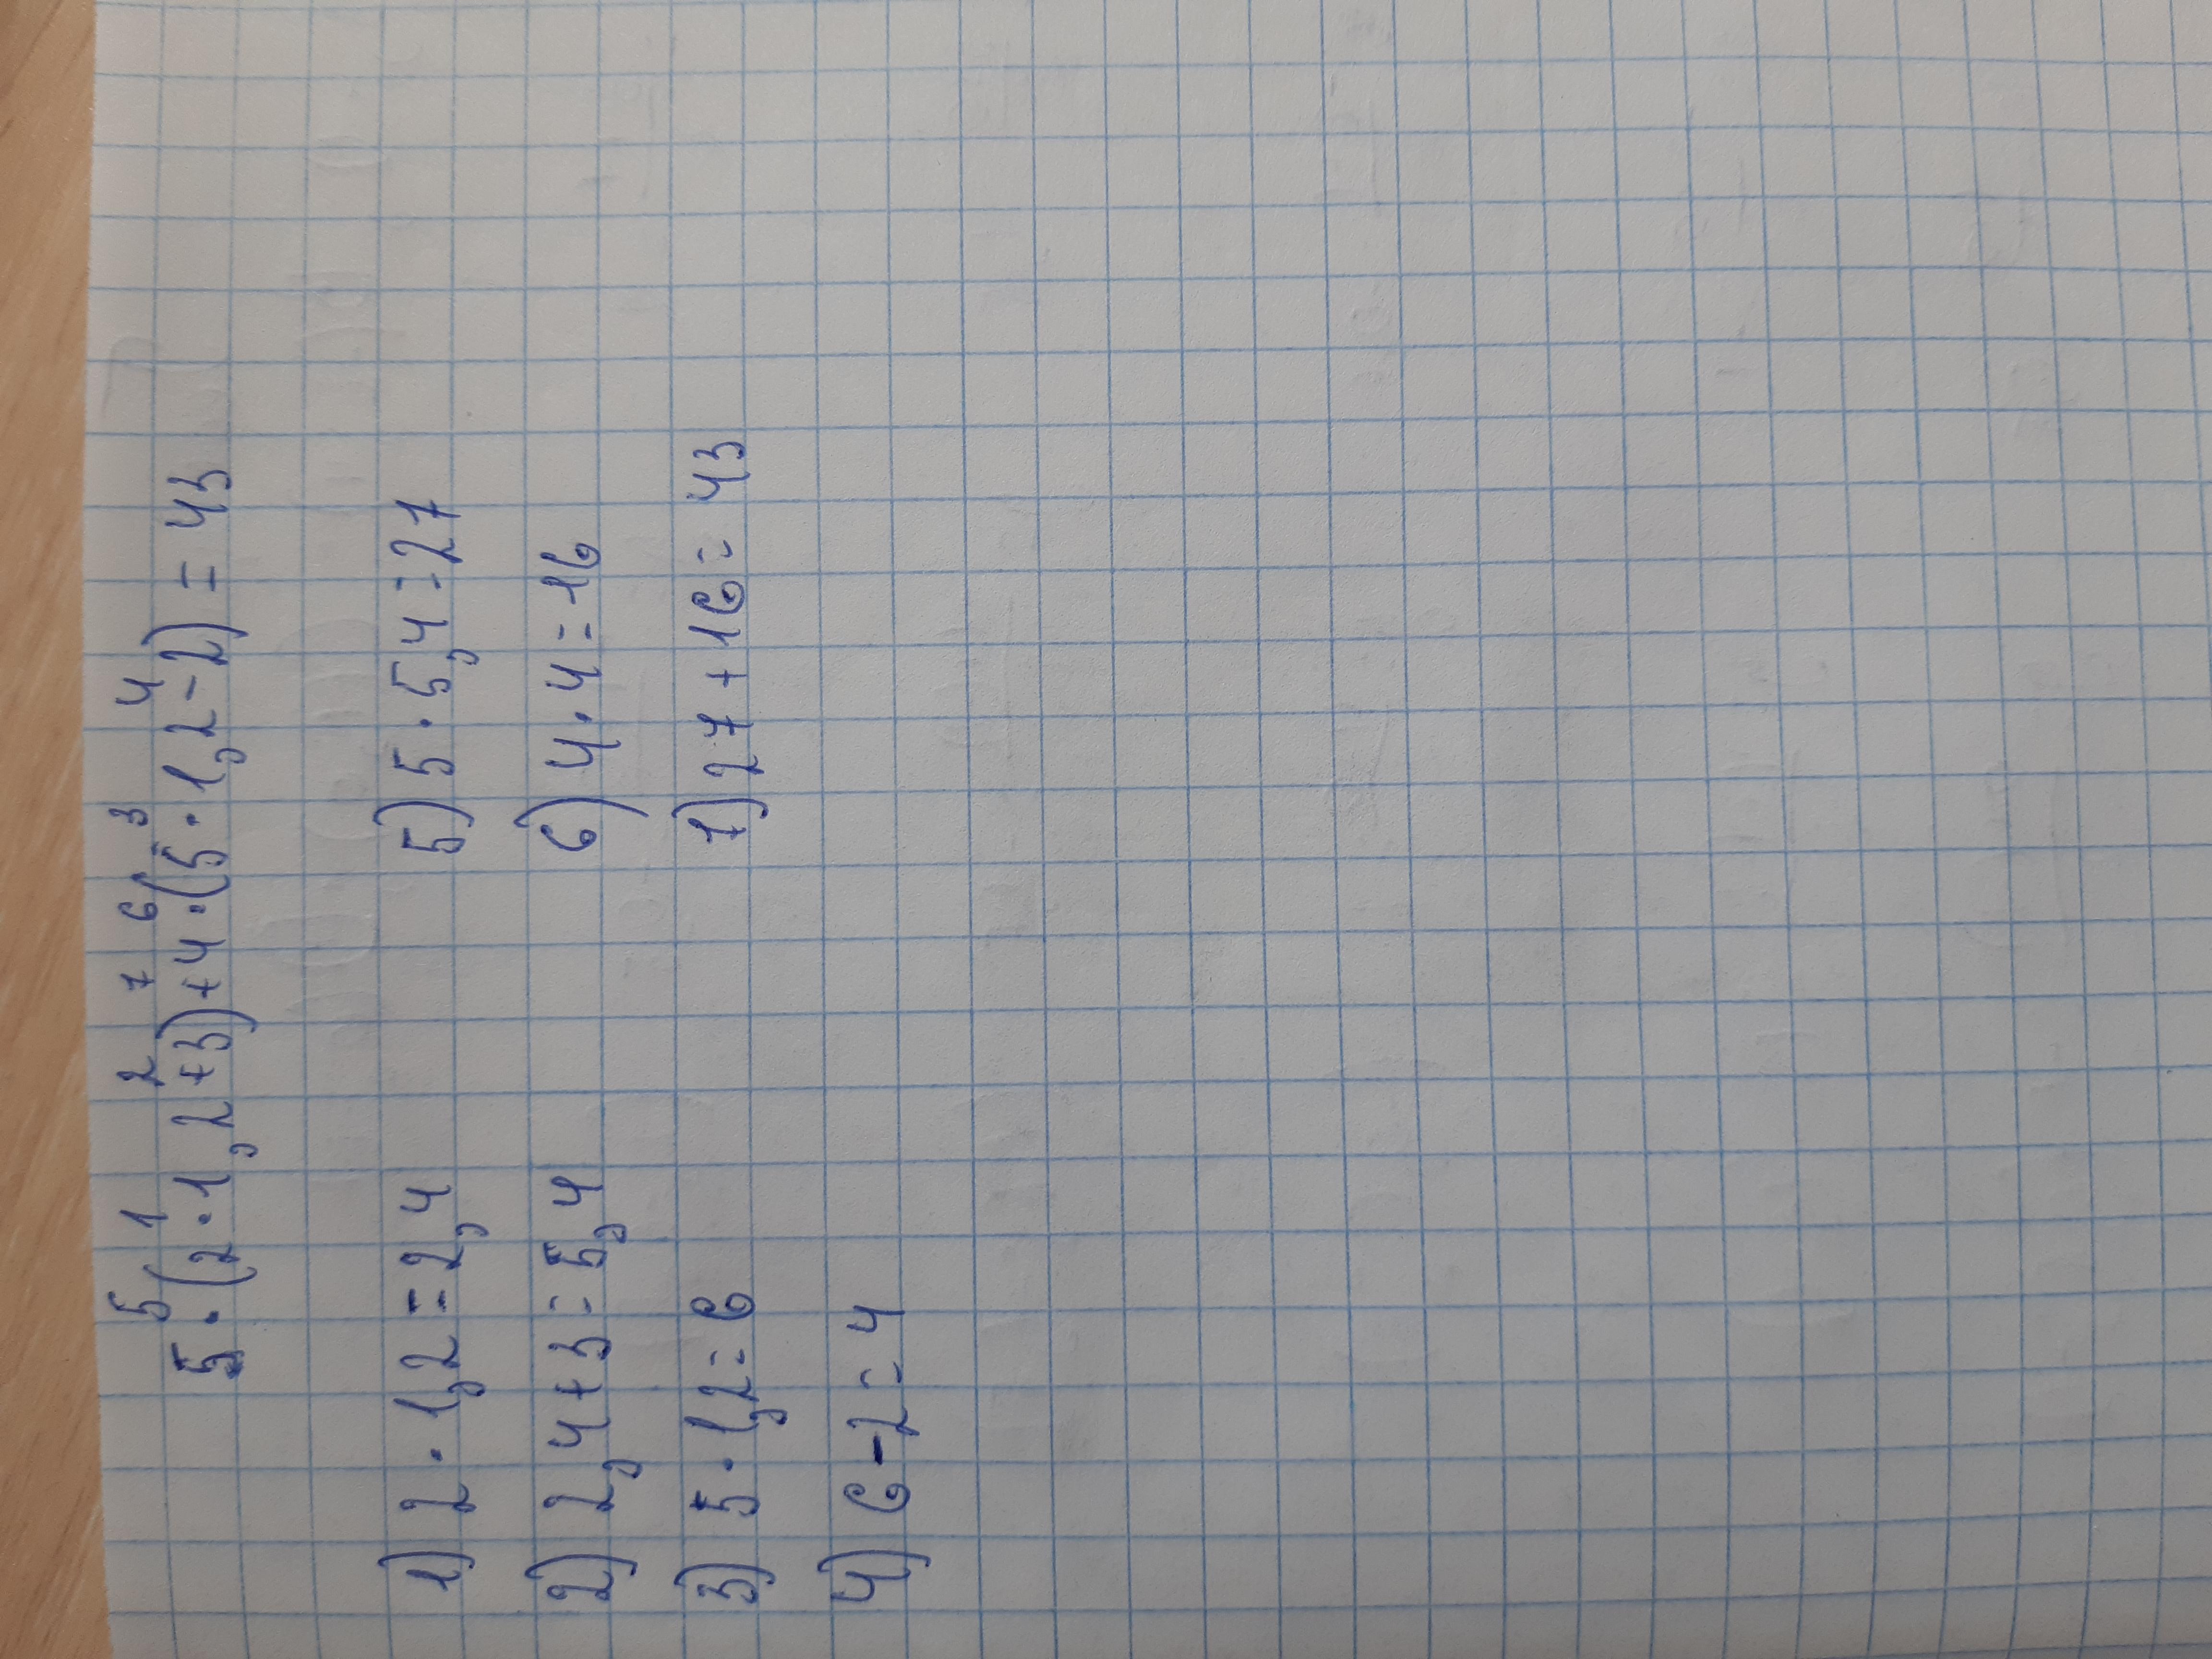 5 1 2 7 6 3 4
5·(2·1,2+3)+4·(5·1,2-2)=43
1) 2·1,2=2,4
2) 2,4+3=5,4
3) 5·1,2=6
4) 6-2=4
5) 5·5,4=27
6) 4·4=16
7) 27+16=43